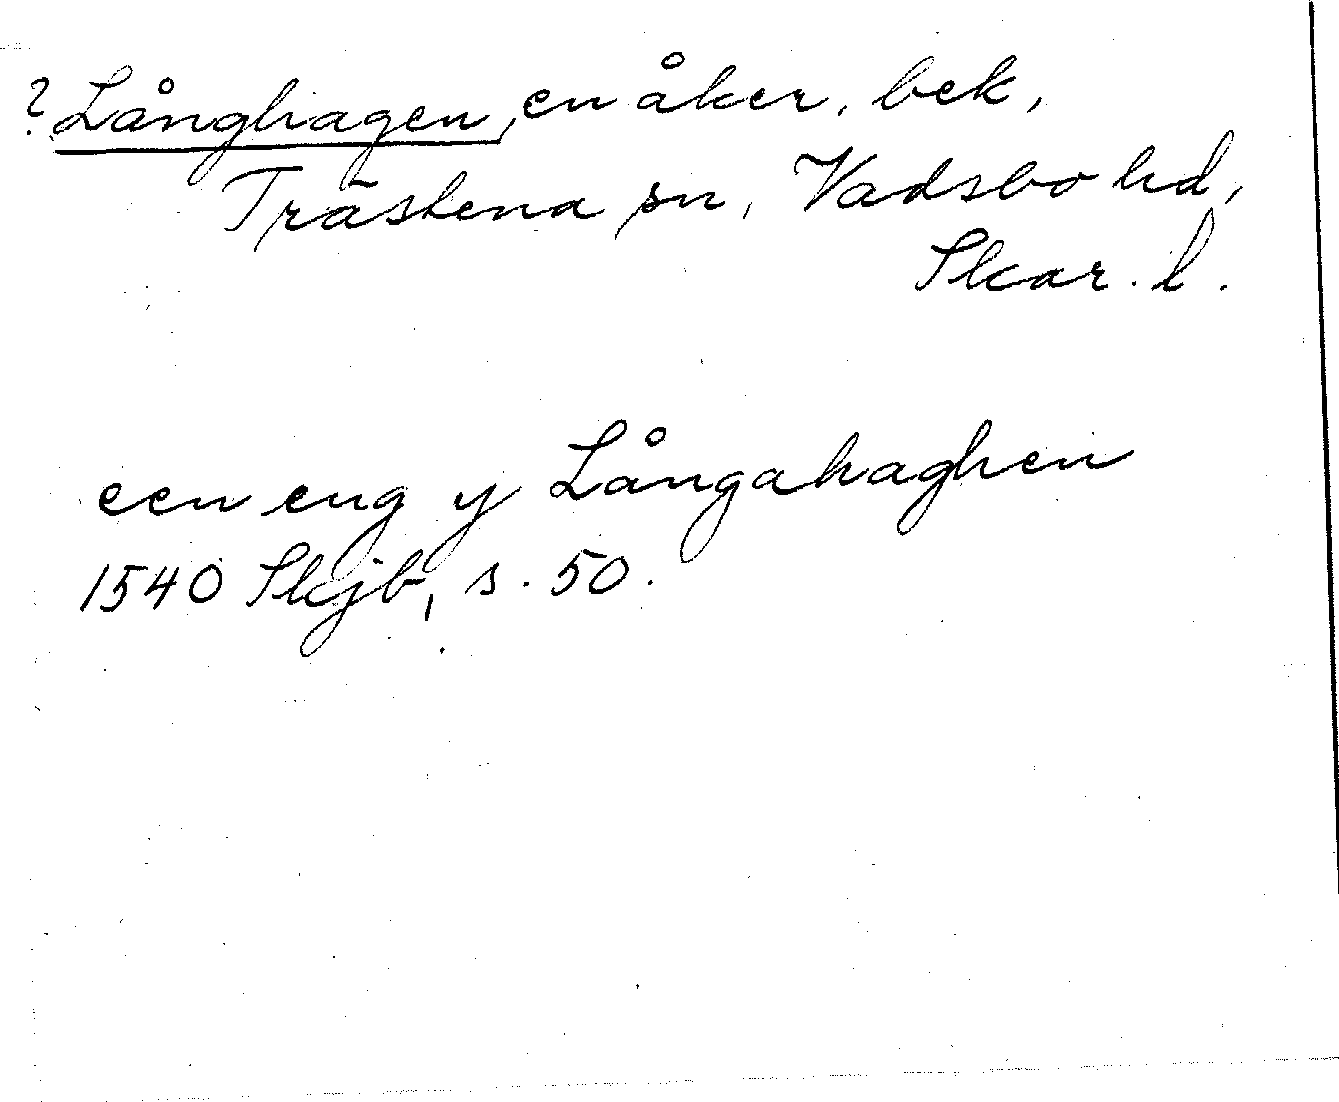 ? Långhagen, en åker, bek,
Trästena sn, Vadsbo hd,
Skar. l.
een eng y Långahaghen
1540 Skjb, s. 50.